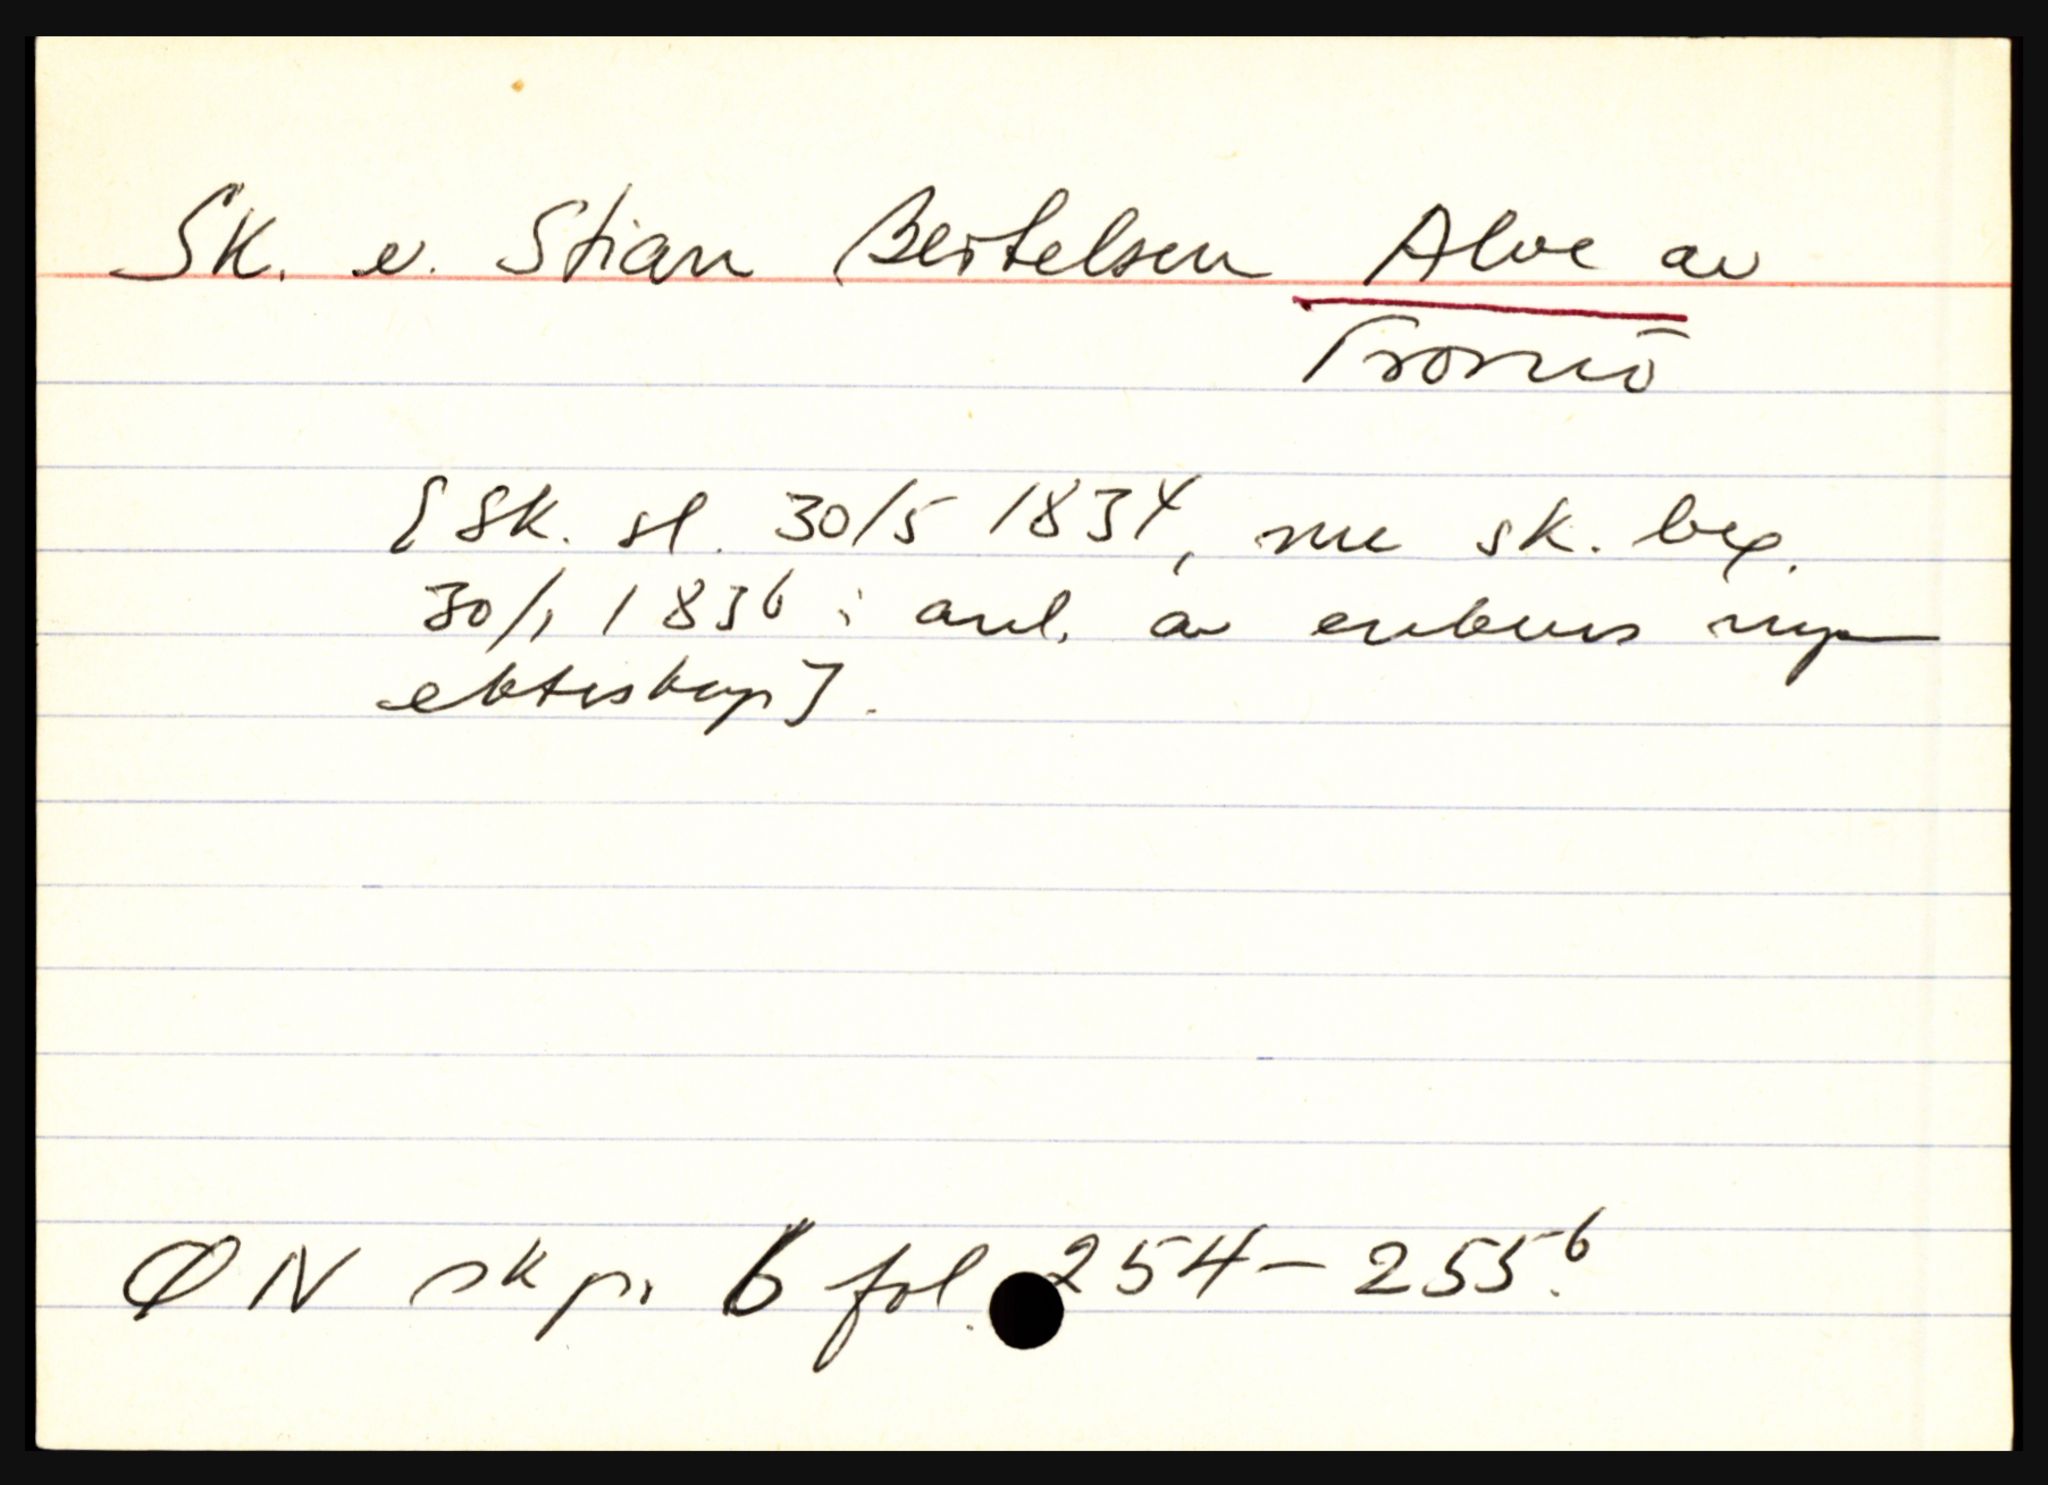 Sk. e. Stian Bertelsen Alve av
Tromö
[Sk. sl. 30/5 1834, nu sk. beg.
30/1 1836 i anl. av enkens nye
ekteskap].
ØN skpr. 6 fol. 254 - 255b.